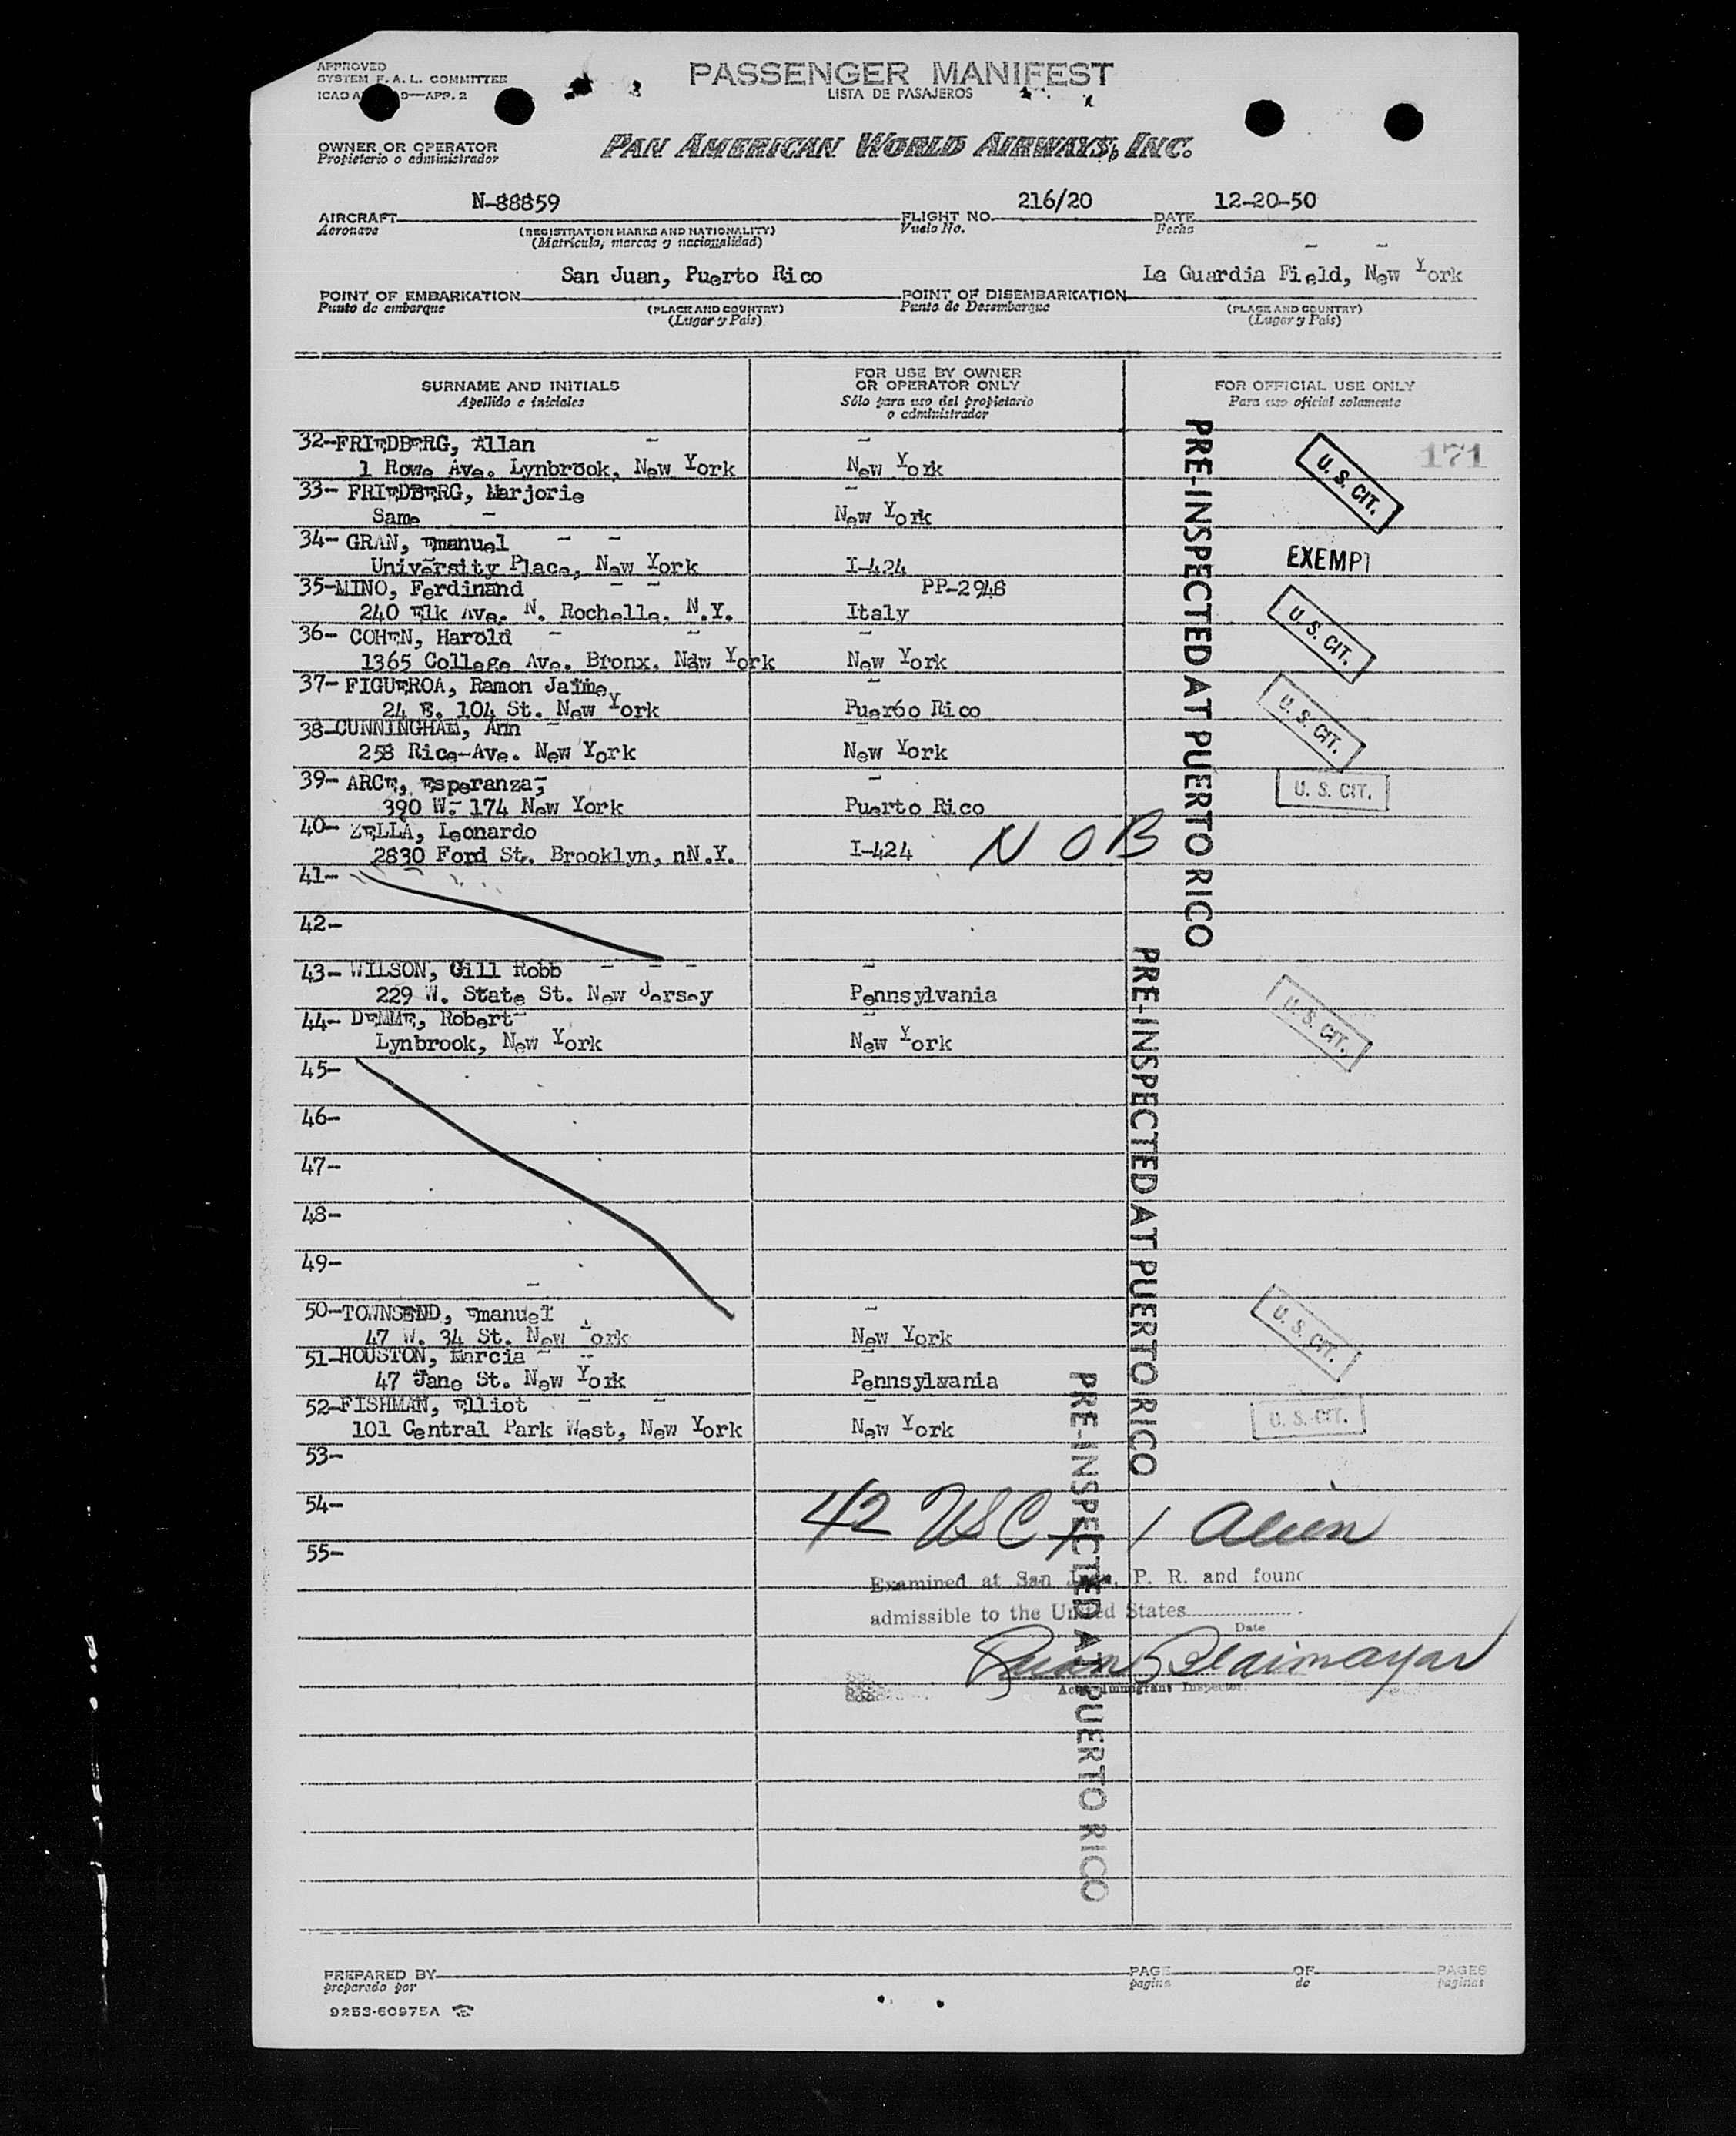 APPROVED
SYSTEM F. A. L. COMMITTEE
ICAO A 9—APP. 2
PASSENGER MANIFEST
LISTA DE PASAJEROS
OWNER OR OPERATOR
Propietario o administrador
PAN AMERICAN WORLD AIRWAYS, INC.
N-88859 216/20 12-20-50
AIRCRAFT FLIGHT NO. DATE
Aeronave (REGISTRATION MARKS AND NATIONALITY) Vuelo No. Fecha
(Matrícula; marcas y nacionalidad)
San Juan, Puerto Rico La Guardia Field, New York
POINT OF EMBARKATION POINT OF DISEMBARKATION
Punto de embarque (PLACE AND COUNTRY) Punto de Desembarque (PLACE AND COUNTRY)
(Lugar y País) (Lugar y País)
SURNAME AND INITIALS FOR USE BY OWNER OR OPERATOR ONLY FOR OFFICIAL USE ONLY
Apellido e iniciales Sólo para uso del propietario o administrador Para uso oficial solamente
32-FRIEDBERG, Allan 171
1 Rowe Ave. Lynbrook, New York New York U. S. CIT.
33- FRIEDBERG, Marjorie
Same New York
34- GRAN, Emanuel
University Place, New York I-424 EXEMPT
35-MINO, Ferdinand PP-2948
240 Elk Ave. N. Rochelle, N.Y. Italy
36- COHEN, Harold U. S. CIT.
1365 College Ave. Bronx, Ndw York New York
37- FIGUEROA, Ramon Jaime
24 E. 104 St. New York Pueróo Rico U. S. CIT.
38-CUNNINGHAM, Ann
258 Rice-Ave. New York New York
39- ARCE, Esperanza,
390 W. 174 New York Puerto Rico U. S. CIT.
40- ZELLA, Leonardo
2830 Ford St. Brooklyn, nN.Y. I-424 N O B
41-
42-
43- WILSON, Gill Robb
229 W. State St. New Jersey Pennsylvania U. S. CIT.
44- DEMME, Robert
Lynbrook, New York New York
45-
46-
47-
48-
49-
50-TOWNSEND, Emanuel
47 W. 34 St. New York New York U. S. CIT.
51-HOUSTON, Marcia
47 Jane St. New York Pennsylvania
52-FISHMAN, Elliot
101 Central Park West, New York New York U. S. CIT.
53-
54-
42 USC + 1 Alien
55-
Examined at San Juan, P. R. and found
admissible to the United States
Date
Juan Blaimayar
Acting Immigrant Inspector.
PRE-INSPECTED AT PUERTO RICO
PRE-INSPECTED AT PUERTO RICO
PRE-INSPECTED AT PUERTO RICO
PREPARED BY PAGE OF PAGES
preparado por pagina de paginas
9253-60975A